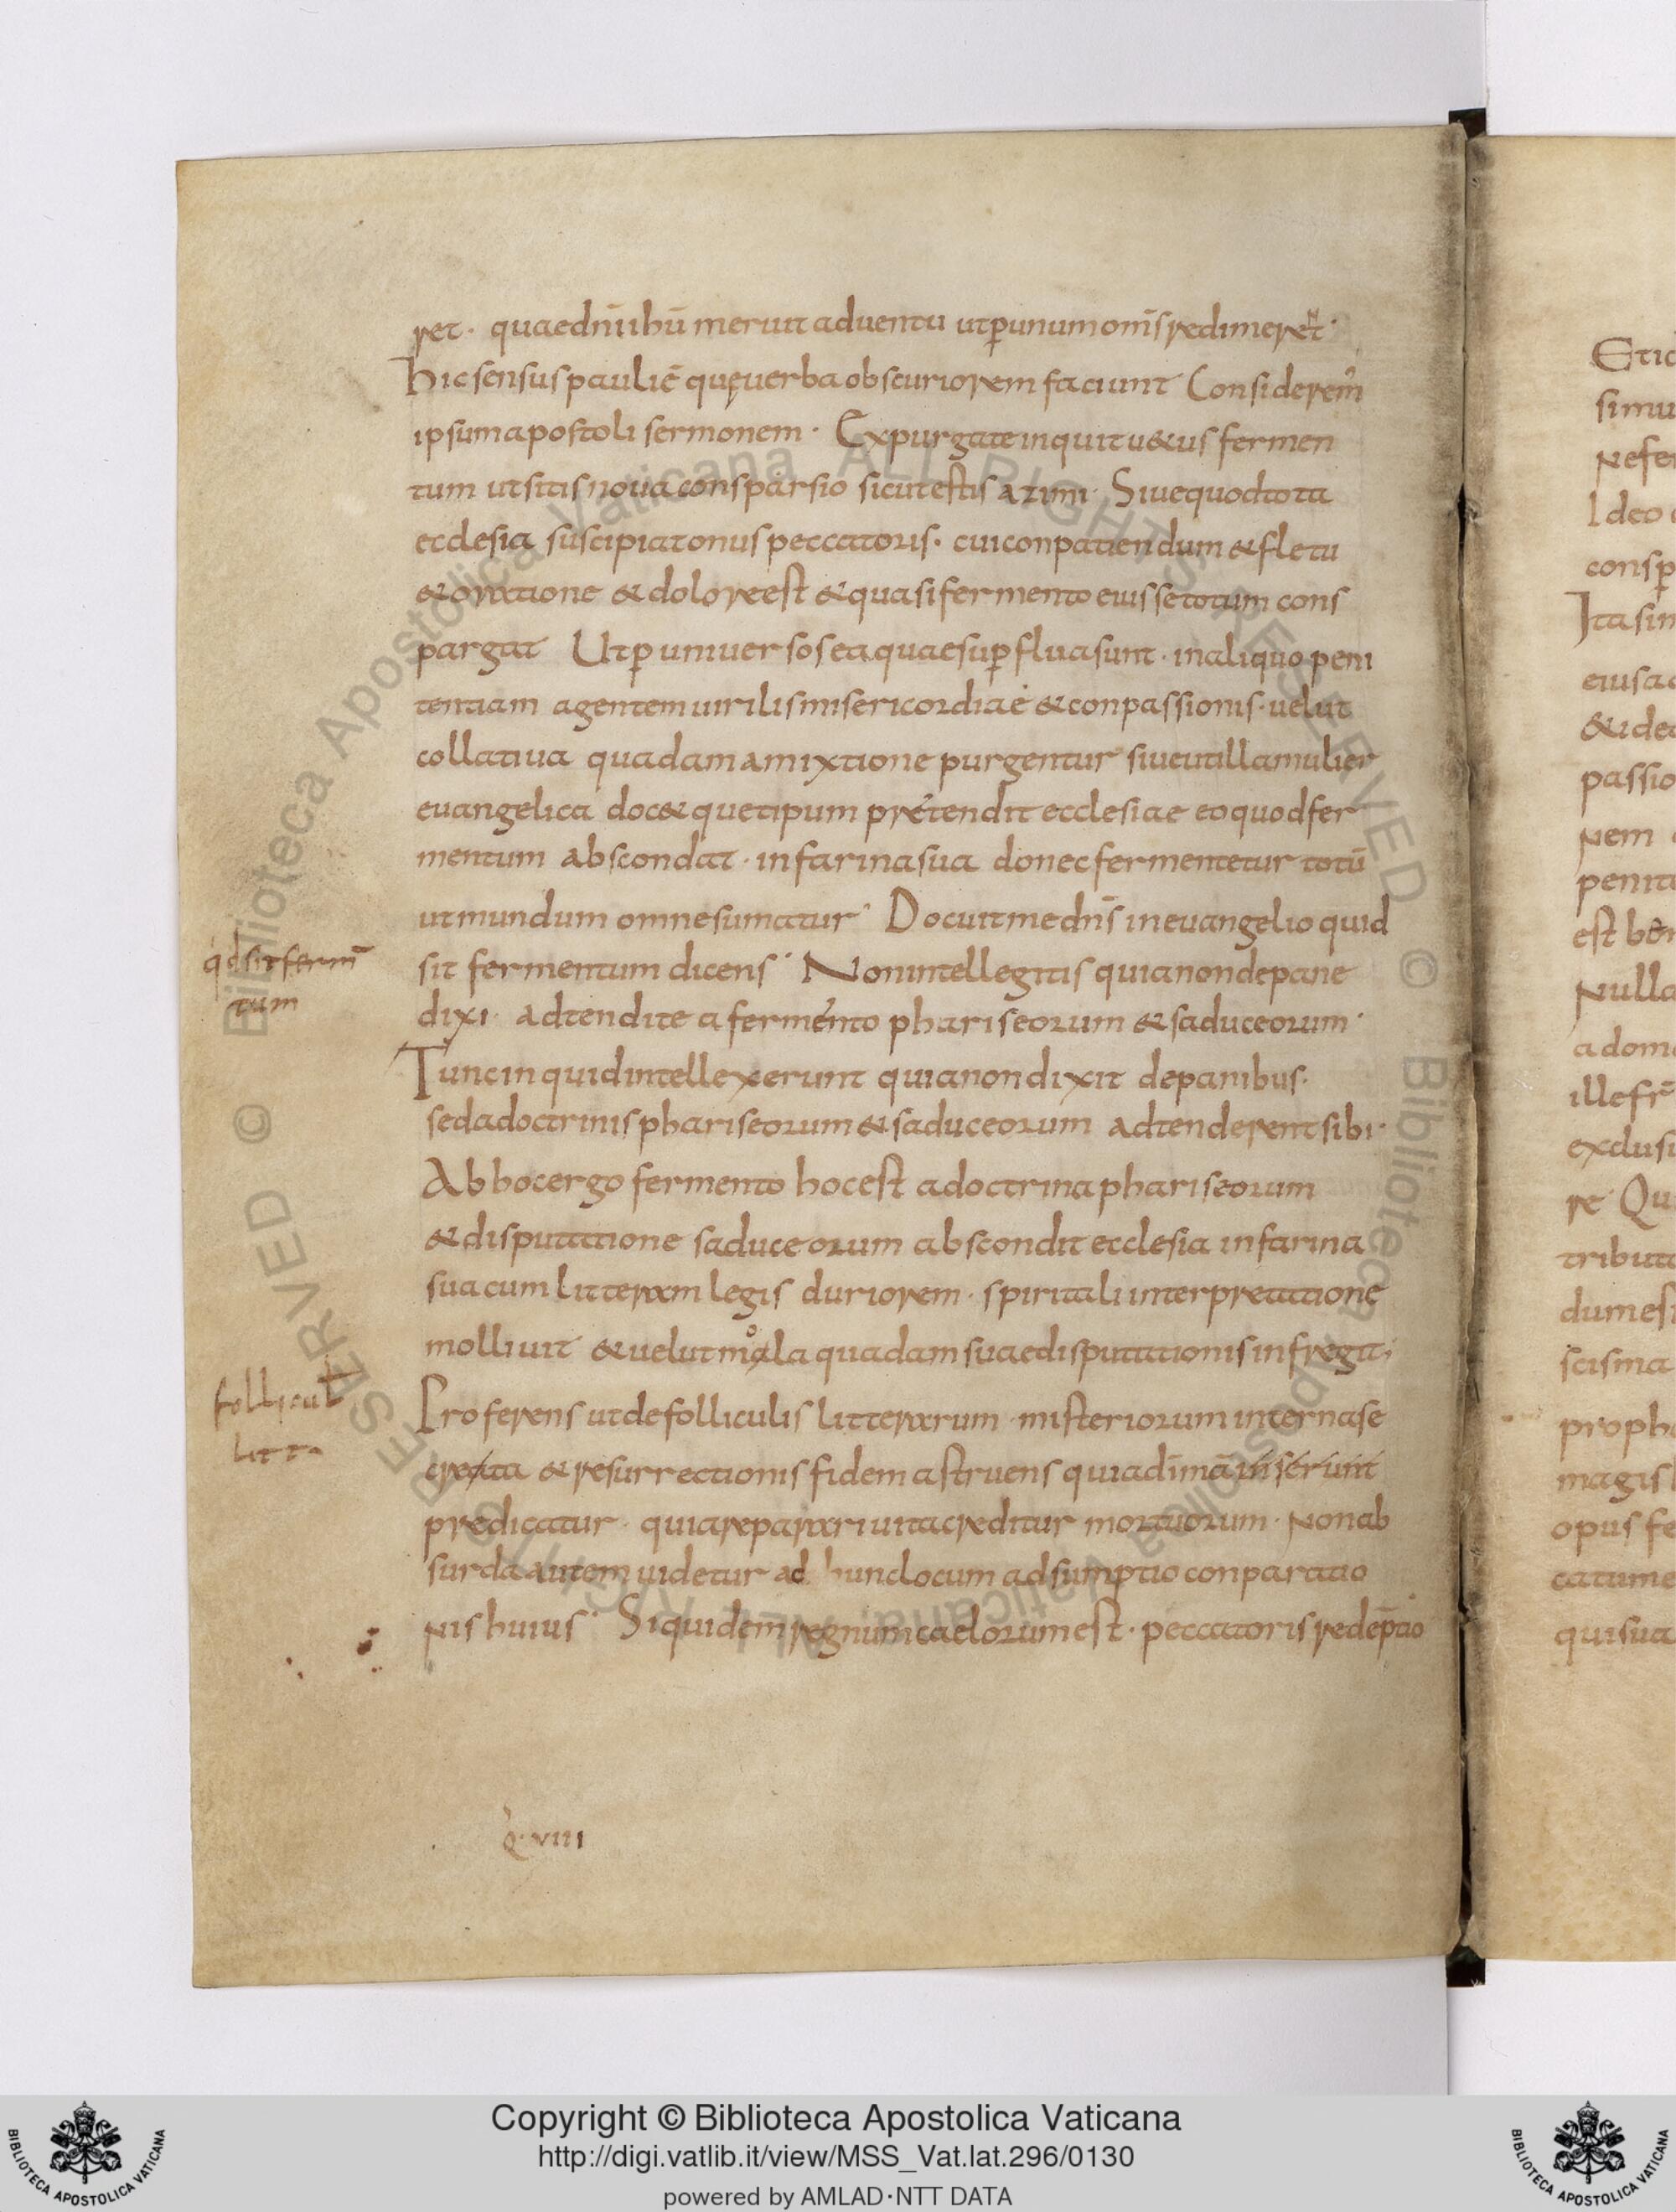 ret · quae dn̄i ih̄u meruit aduentu ut p̱ unum om̄s redimeret ·
hic sensus pauli ē quę uerba obscuriorem faciunt Considerem̄
ipsum apostoli sermonem · Expurgate inquit u&us fermen
tum ut sitis noua consparsio sicut estis azimi · Siue quod tota
ecclesia suscipiat onus peccatoris · cui conpatiendum & fletu
& oratione & dolore est & quasi fermento eius se totum cons
pargat Ut p̱ uniuersos ea quae sup̱flua sunt · in aliquo peni
tentiam agentem uirilis misericordiae & conpassionis · uelut
collatiua quadam amixtione purgentur siue ut illa mulier
euangelica doc& que tipum prętendit ecclesiae eo quod fer
mentum abscondat · in farina sua donec fermentetur totū
ut mundum omne sumatur Docuit me dn̄s in euangelio quid
sit fermentum dicens · Non intellegitis quia non de pane
dixi · adtendite a fermento phariseorum & saduceorum ·
Tunc inquid intellexerunt quia non dixit de panibus ·
sed a doctrinis phariseorum & saduceorum adtenderent sibi ·
Ab hoc ergo fermento hoc est a doctrina phariseorum
& disputatione saduceorum abscondit ecclesia in farina
sua cum litteram legis duriorem · spiritali interpretatione
molliuit & uelut mola quadam suae disputationis infregit ·
Proferens ut de folliculis litterarum · misteriorum interna se
creta & resurrectionis fidem astruens qui ad im̄ā inserunt
predicatur · quia reparari uita creditur mortuorum · Non ab
surda autem uidetur ad hunc locum adsumptio conparatio
nis huius · Siquidem regnum caelorum est · peccatoris redēptio
qd sit ferm̄
tum
follicul
litt
Q · VIII
Etic
simu
Nefer
Ideo
consp̱
Ita sin
eius ac
& idec
passio
nem
penita
est bon
Nulla
a domo
ille fr̄
exclusi
re Qu
tributa
dum esi
scisma
prophe
magis
opus fe
catume
qui sua
Copyright © Biblioteca Apostolica Vaticana
http://digi.vatlib.it/view/MSS_Vat.lat.296/0130
powered by AMLAD·NTT DATA
BIBLIOTECA APOSTOLICA VATICANA
BIBLIOTECA APOSTOLICA VATICANA